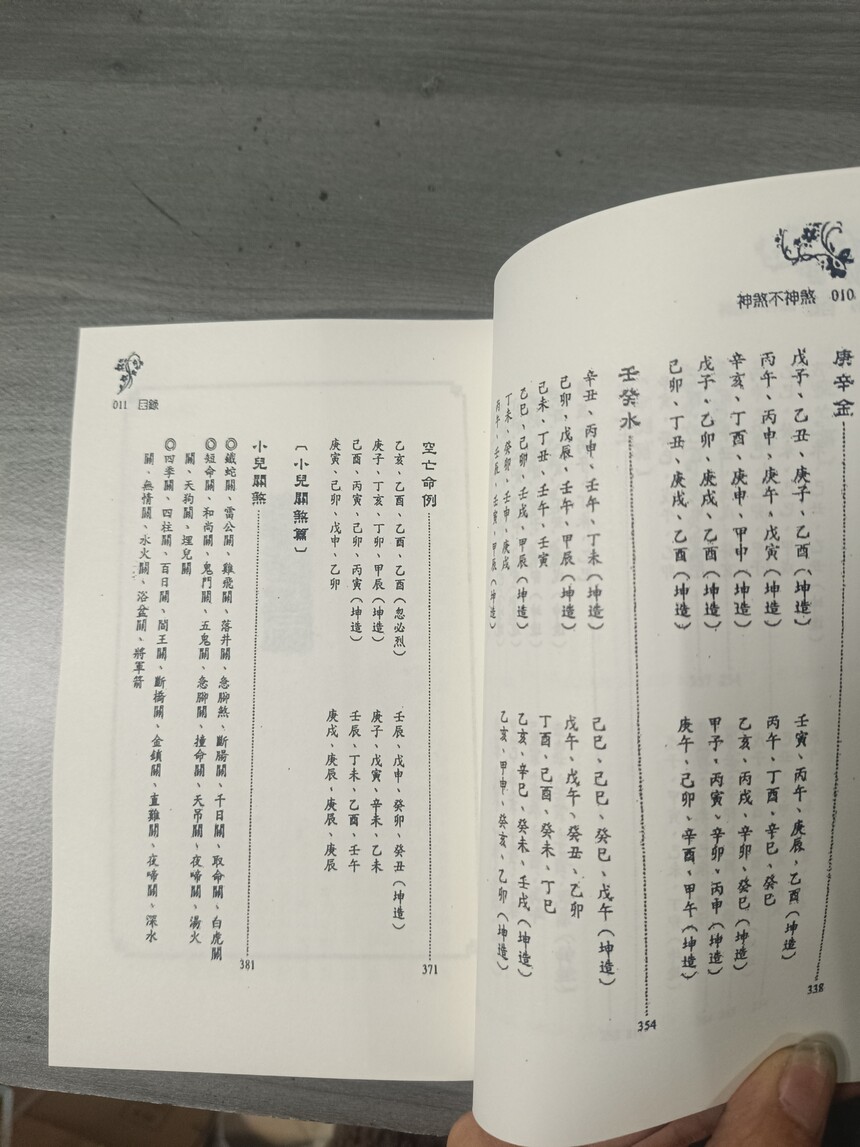 神煞不神煞 010
庚辛金 338
戊子、乙丑、庚子、乙酉（坤造）
壬寅、丙午、庚辰、乙酉（坤造）
丙午、丙申、庚午、戊寅（坤造）
丙午、丁酉、辛巳、癸巳
辛亥、丁酉、庚申、甲申（坤造）
乙亥、丙戌、辛卯、癸巳（坤造）
戊子、乙卯、庚戌、乙酉（坤造）
甲子、丙寅、辛卯、丙申（坤造）
己卯、丁丑、庚戌、乙酉（坤造）
庚午、己卯、辛酉、甲午（坤造）
壬癸水 354
辛丑、丙申、壬午、丁未（坤造）
己巳、己巳、癸巳、戊午（坤造）
己卯、戊辰、壬午、甲辰（坤造）
戊午、戊午、癸丑、乙卯
己未、丁丑、壬午、壬寅
丁酉、己酉、癸未、丁巳
乙巳、己卯、壬戌、甲辰（坤造）
乙亥、辛巳、癸未、壬戌（坤造）
丁未、癸卯、壬申、庚戌
乙亥、甲申、癸亥、乙卯（坤造）
丙午、壬辰、壬寅、甲辰（坤造）
011 目錄
空亡命例 371
乙亥、乙酉、乙酉、乙酉（忽必烈）
壬辰、戊申、癸卯、癸丑（坤造）
庚子、丁亥、丁卯、甲辰（坤造）
庚子、戊寅、辛未、乙未
己酉、丙寅、己卯、丙寅（坤造）
壬辰、丁未、乙酉、壬午
庚寅、己卯、戊申、乙卯
庚戌、庚辰、庚辰、庚辰
〔小兒關煞篇〕
小兒關煞 381
◎鐵蛇關、雷公關、雞飛關、落井關、急腳煞、斷腸關、千日關、取命關、白虎關
◎短命關、和尚關、鬼門關、五鬼關、急腳關、撞命關、天吊關、夜啼關、湯火
關、天狗關、埋兒關
◎四季關、四柱關、百日關、閻王關、斷橋關、金鎖關、直難關、夜啼關、深水
關、無情關、水火關、浴盆關、將軍箭